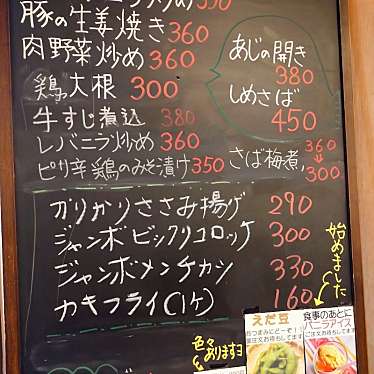 豚の生姜焼き 360
肉野菜炒め 360
鶏大根 300
牛すじ煮込 380
レバニラ炒め 360
ピリ辛鶏のみそ漬け 350
あじの開き
380
しめさば
450
さば梅煮 360
300
ガリかりささみ揚げ 290
ジャンボビックリコロッケ 300
ジャンボメンチカシ 330
カキフライ(1ヶ) 160
始めました
色々
ありますヨ
えだ豆
食事のあとに
バニラアイス